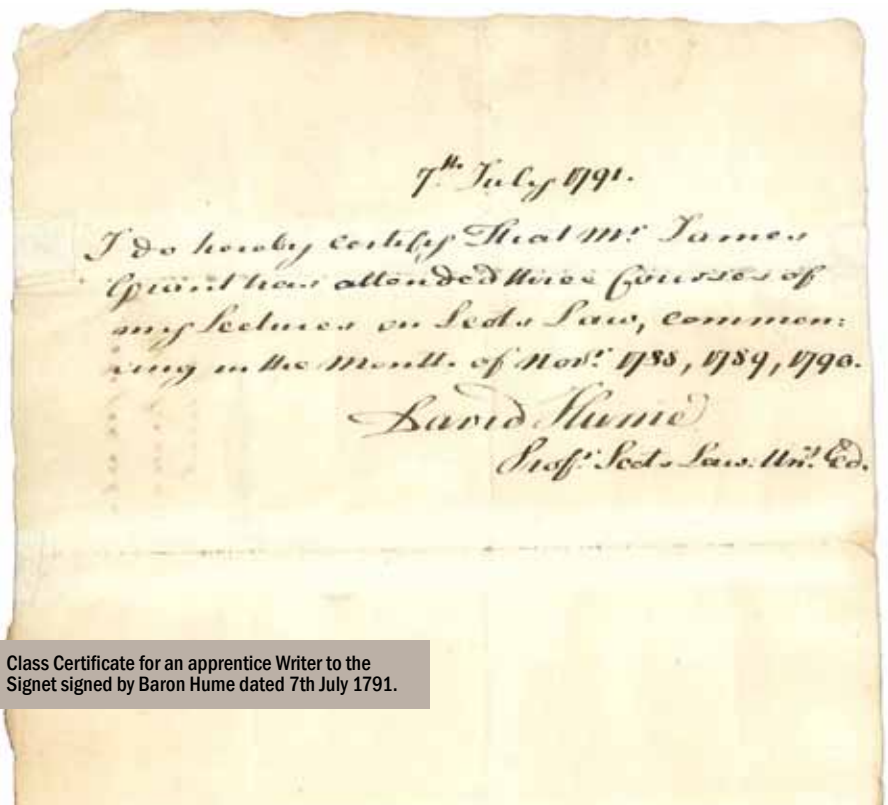 7th July 1791.
I do hereby certify That Mr James
Grant has attended three Courses of
my Lectures on Scots Law, commen:
cing in the Month of Novr. 1788, 1789, 1790.
David Hume
Profr. Scots Law. Unr. Ed.
Class Certificate for an apprentice Writer to the
Signet signed by Baron Hume dated 7th July 1791.